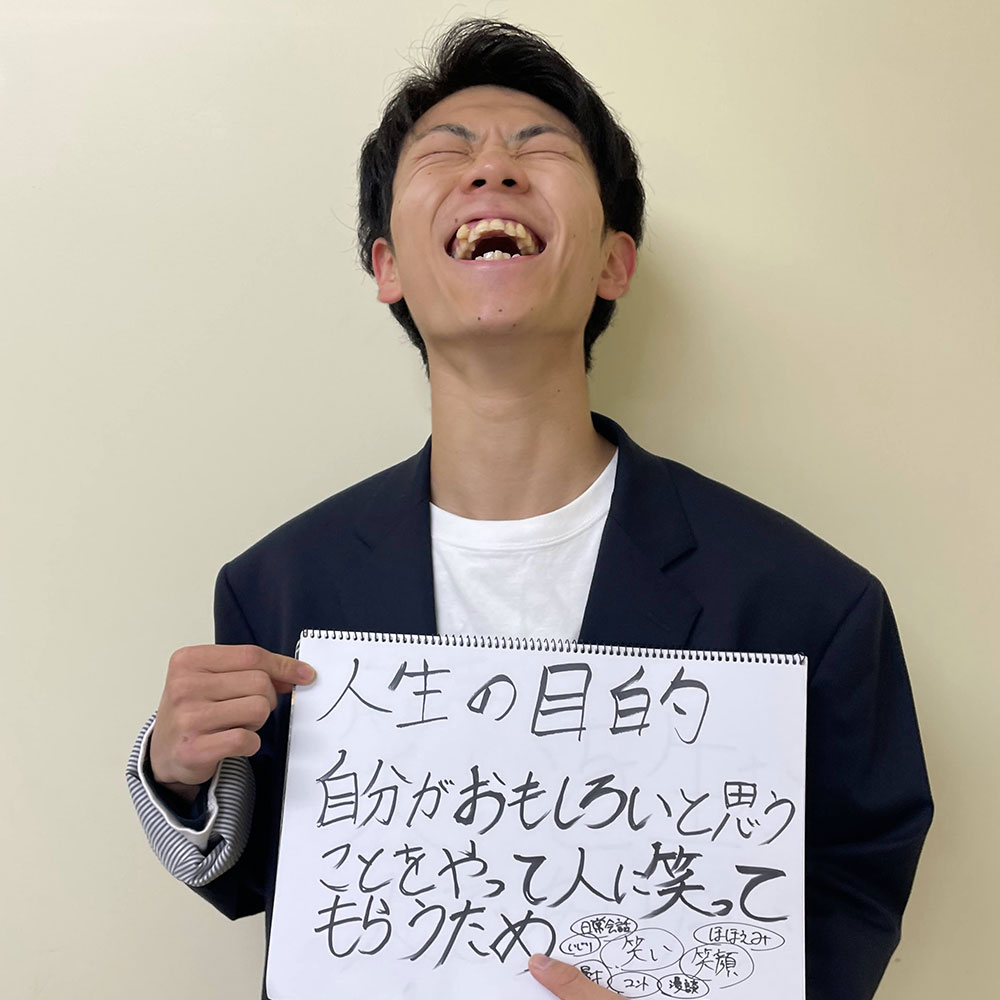 人生の目的
自分がおもしろいと思う
ことをやって人に笑って
もらうため
日常会話
いじり
笑い
ほほえみ
笑顔
コント
漫談